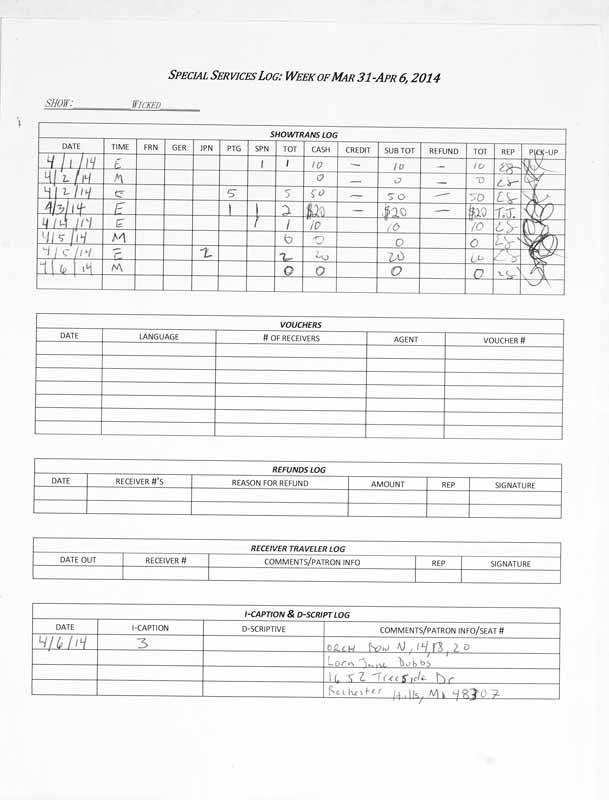 SPECIAL SERVICES LOG: WEEK OF MAR 31-APR 6, 2014
SHOW: WICKED
SHOWTRANS LOG
DATE TIME FRN GER JPN PTG SPN TOT CASH CREDIT SUB TOT REFUND TOT REP PICK-UP
4/1/14 E 1 1 10 - 10 - 10
4/2/14 M 0 - 0 - 0 LS
4/2/14 E 5 5 50 - 50 - 50 LS
4/3/14 E 1 1 2 $20 - $20 - $20 T.J.
4/4/14 E 1 1 10 10 10 LS
4/5/14 M 0 0 0 0 LS
4/5/14 E 2 2 20 20 LS
4/6/14 M 0 0 0 0 LS
VOUCHERS
DATE LANGUAGE # OF RECEIVERS AGENT VOUCHER #
REFUNDS LOG
DATE RECEIVER #'S REASON FOR REFUND AMOUNT REP SIGNATURE
RECEIVER TRAVELER LOG
DATE OUT RECEIVER # COMMENTS/PATRON INFO REP SIGNATURE
I-CAPTION & D-SCRIPT LOG
DATE I-CAPTION D-SCRIPTIVE COMMENTS/PATRON INFO/SEAT #
4/6/14 3 ORCH ROW N, 14, 18, 20
June Dubbs
1652 Treeside Dr
Rochester Hills, MI 48307